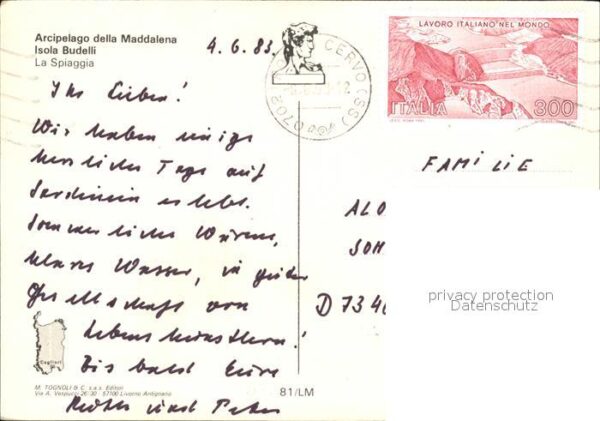 Arcipelago della Maddalena
Isola Budelli
La Spiaggia
4.6.83
Ihr Lieben!
Wir haben einige
herrliche Tage auf
Sardinien erlebt.
Sommerliche Wärme,
klares Wasser, in guter
Gesellschaft von
Lebenskünstlern!
Bis bald Eure
und Peter
Cagliari
M. TOGNOLI & C. s.a.s. Editori
Via A. Vespucci 26/30 - 57100 Livorno Antignano
81/LM
CERVO (SS)
LAVORO ITALIANO NEL MONDO
ITALIA 300
FAMILIE
ALO
SOM
D 7340
privacy protection
Datenschutz